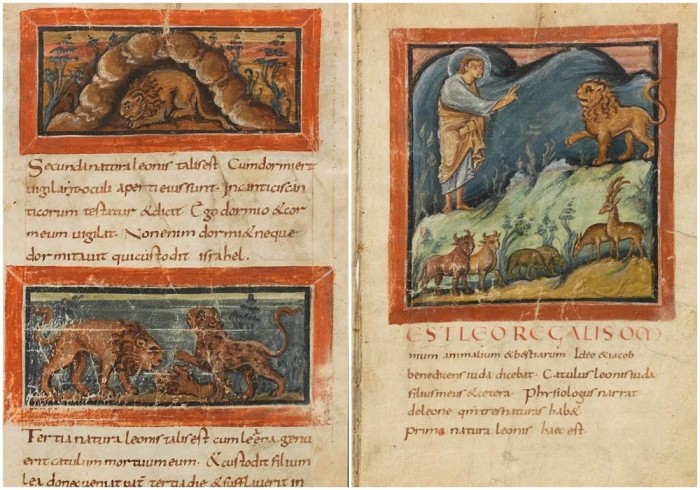 Secunda natura leonis talis est Cum dormierit
vigilant oculi aperti eius sunt. In canticis can
ticorum testatur & dicit. Ego dormio & cor
meum vigilat. Non enim dormi& neque
dormitavit qui custodit israhel.
Tertia natura leonis talis est cum leena genu
erit catulum mortuum eum. & custodit filium
lea donec veniat pat tertia die & sufflaverit in
EST LEO REGALIS OM
nium animalium & bestiarum. Ideo & iacob
benedicens iuda dicebat. Catulus leonis iuda
filius meus & cetera. Phisiologus narrat
de leone qm tres naturas hab&
prima natura leonis haec est.